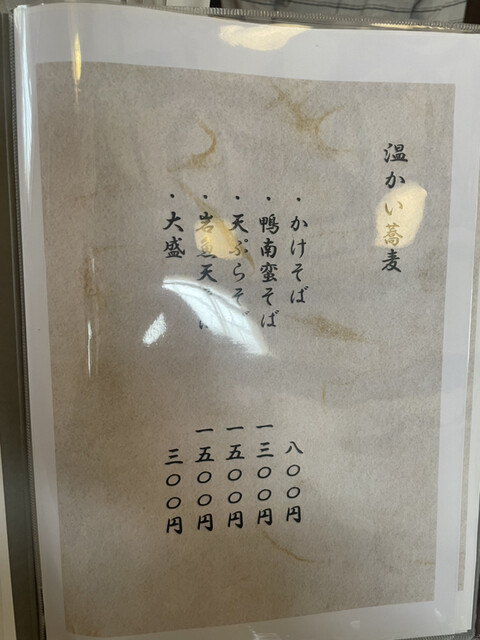 温かい蕎麦
・かけそば 八〇〇円
・鴨南蛮そば 一三〇〇円
・天ぷらそば 一五〇〇円
・岩魚天そば 一五〇〇円
・大盛 三〇〇円